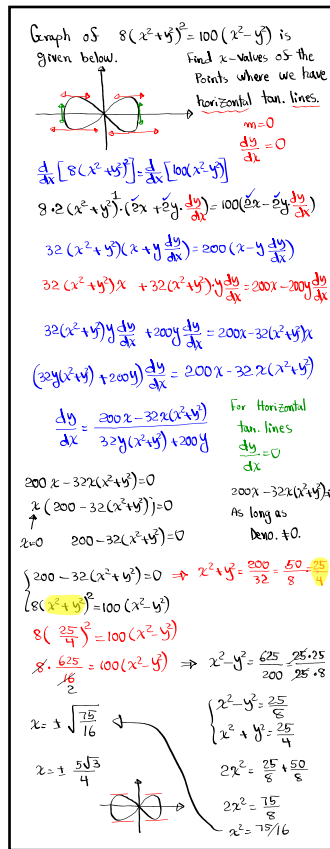 Graph of 8(x²+y²)² = 100(x²-y²) is
given below.
Find x-values of the
Points where we have
horizontal tan. lines.
m=0
dy/dx = 0
d/dx [8(x²+y²)²] = d/dx [100(x²-y²)]
8·2(x²+y²)¹·(2x+2y·dy/dx) = 100(2x-2y·dy/dx)
32(x²+y²)(x+y dy/dx) = 200(x-y dy/dx)
32(x²+y²)x + 32(x²+y²)·y dy/dx = 200x-200y dy/dx
32(x²+y²)y dy/dx + 200y dy/dx = 200x-32(x²+y²)x
(32y(x²+y²) + 200y) dy/dx = 200x-32x(x²+y²)
dy/dx = (200x-32x(x²+y²))/(32y(x²+y²)+200y)
For Horizontal
tan. lines
dy/dx = 0
200x-32x(x²+y²)=0
200x-32x(x²+y²)=
x(200-32(x²+y²))=0
As long as
Deno. ≠0.
x=0 200-32(x²+y²)=0
{200-32(x²+y²)=0 ⇒ x²+y² = 200/32 = 50/8 = 25/4
8(x²+y²)²=100(x²-y²)
8(25/4)²=100(x²-y²)
8·625/16 = 100(x²-y²) ⇒ x²-y² = 625/200 = 25·25/25·8
2
{x²-y² = 25/8
x²+y² = 25/4
x = ± √(75/16)
2x² = 25/8 + 50/8
x = ± 5√3/4
2x² = 75/8
x² = 75/16